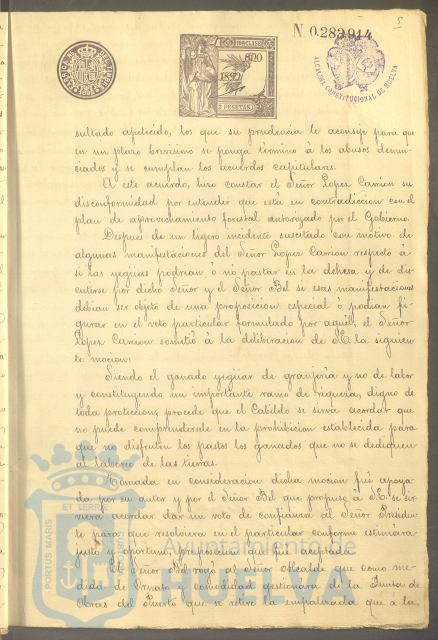 N 0.283,914
5
10ª CLASE
1892
2 PESETAS
ALCALDIA CONSTITUCIONAL DE HUELVA
sultado apetecido, los que su prudencia le aconseje para que
en un plazo brevisimo se ponga término á los abusos denun-
ciados y se cumplan los acuerdos capitulares.
A este acuerdo, hizo constar el Señor Lopez Carrion su
disconformidad por entender que está en contradiccion con el
plan de aprovechamiento forestal autorizado por el Gobierno.
Despues de un ligero incidente suscitado con motivo de
algunas manifestaciones del Señor Lopez Carrion respecto á
si las yeguas podrian ó no pastar en la dehesa y de dis-
cutirse por dicho Señor y el Señor Bel se esas manifestaciones
debian ser objeto de una proposicion especial ó podian fi-
gurar en el voto particular formulado por aquel, el Señor
Lopez Carrion sometió á la deliberacion de S.E. la siguien-
te mocion:
Siendo el ganado yeguar de granjería y no de labor
y constituyendo un importante ramo de riqueza, digno de
toda proteccion, procede que el Cabildo se sirva acordar que
no puede comprenderse en la prohibicion establecida para
que no disfruten los pastos los ganados que no se dediquen
al laboreo de las tierras.
Tomada en consideracion dicha mocion fué apoya-
da por su autor y por el Señor Bel que propuso á S.E. se sir-
viera acordar dar un voto de confianza al Señor Presiden-
te para que resolviera en el particular conforme estimára
justo y oportuno, proposicion que fué aceptada.
El Señor Bel rogó al Señor Alcalde que como me-
dida de Ornato y comodidad gestionára de la Junta de
Obras del Puerto que se retire la empalizada que á la
PORTUS MARIS ET TERRÆ
Ayuntamiento de
HUELVA